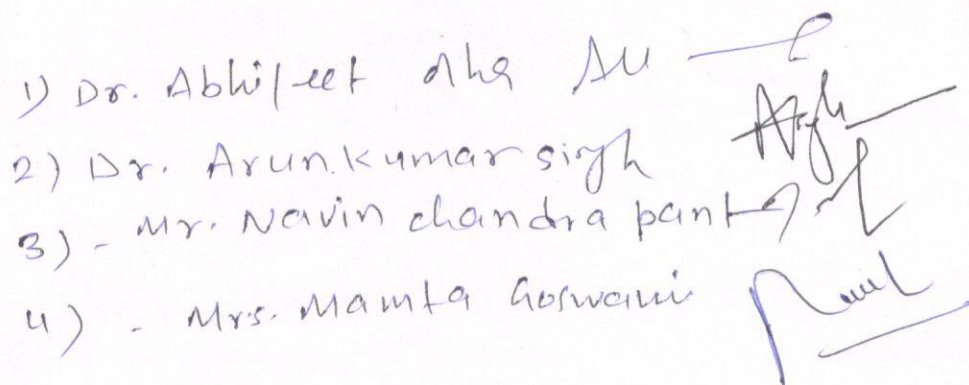 1) Dr. Abhijeet
2) Dr. Arun kumar singh
3) - Mr. Navin chandra pant
4) - Mrs. Mamta Goswami